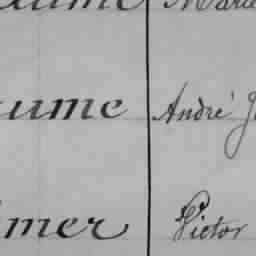 aume Marie
aume André J
mer Victor